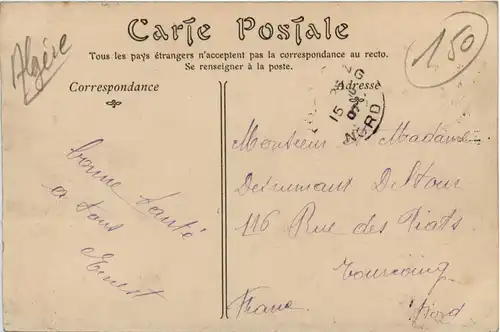 Algérie
150
Carte Postale
Tous les pays étrangers n'acceptent pas la correspondance au recto.
Se renseigner à la poste.
Correspondance
Adresse
15
NORD
bonne santé
a tous
Ernest
Monsieur & Madame
Desrumaux Deltour
116 Rue des Piats
Tourcoing
France Nord